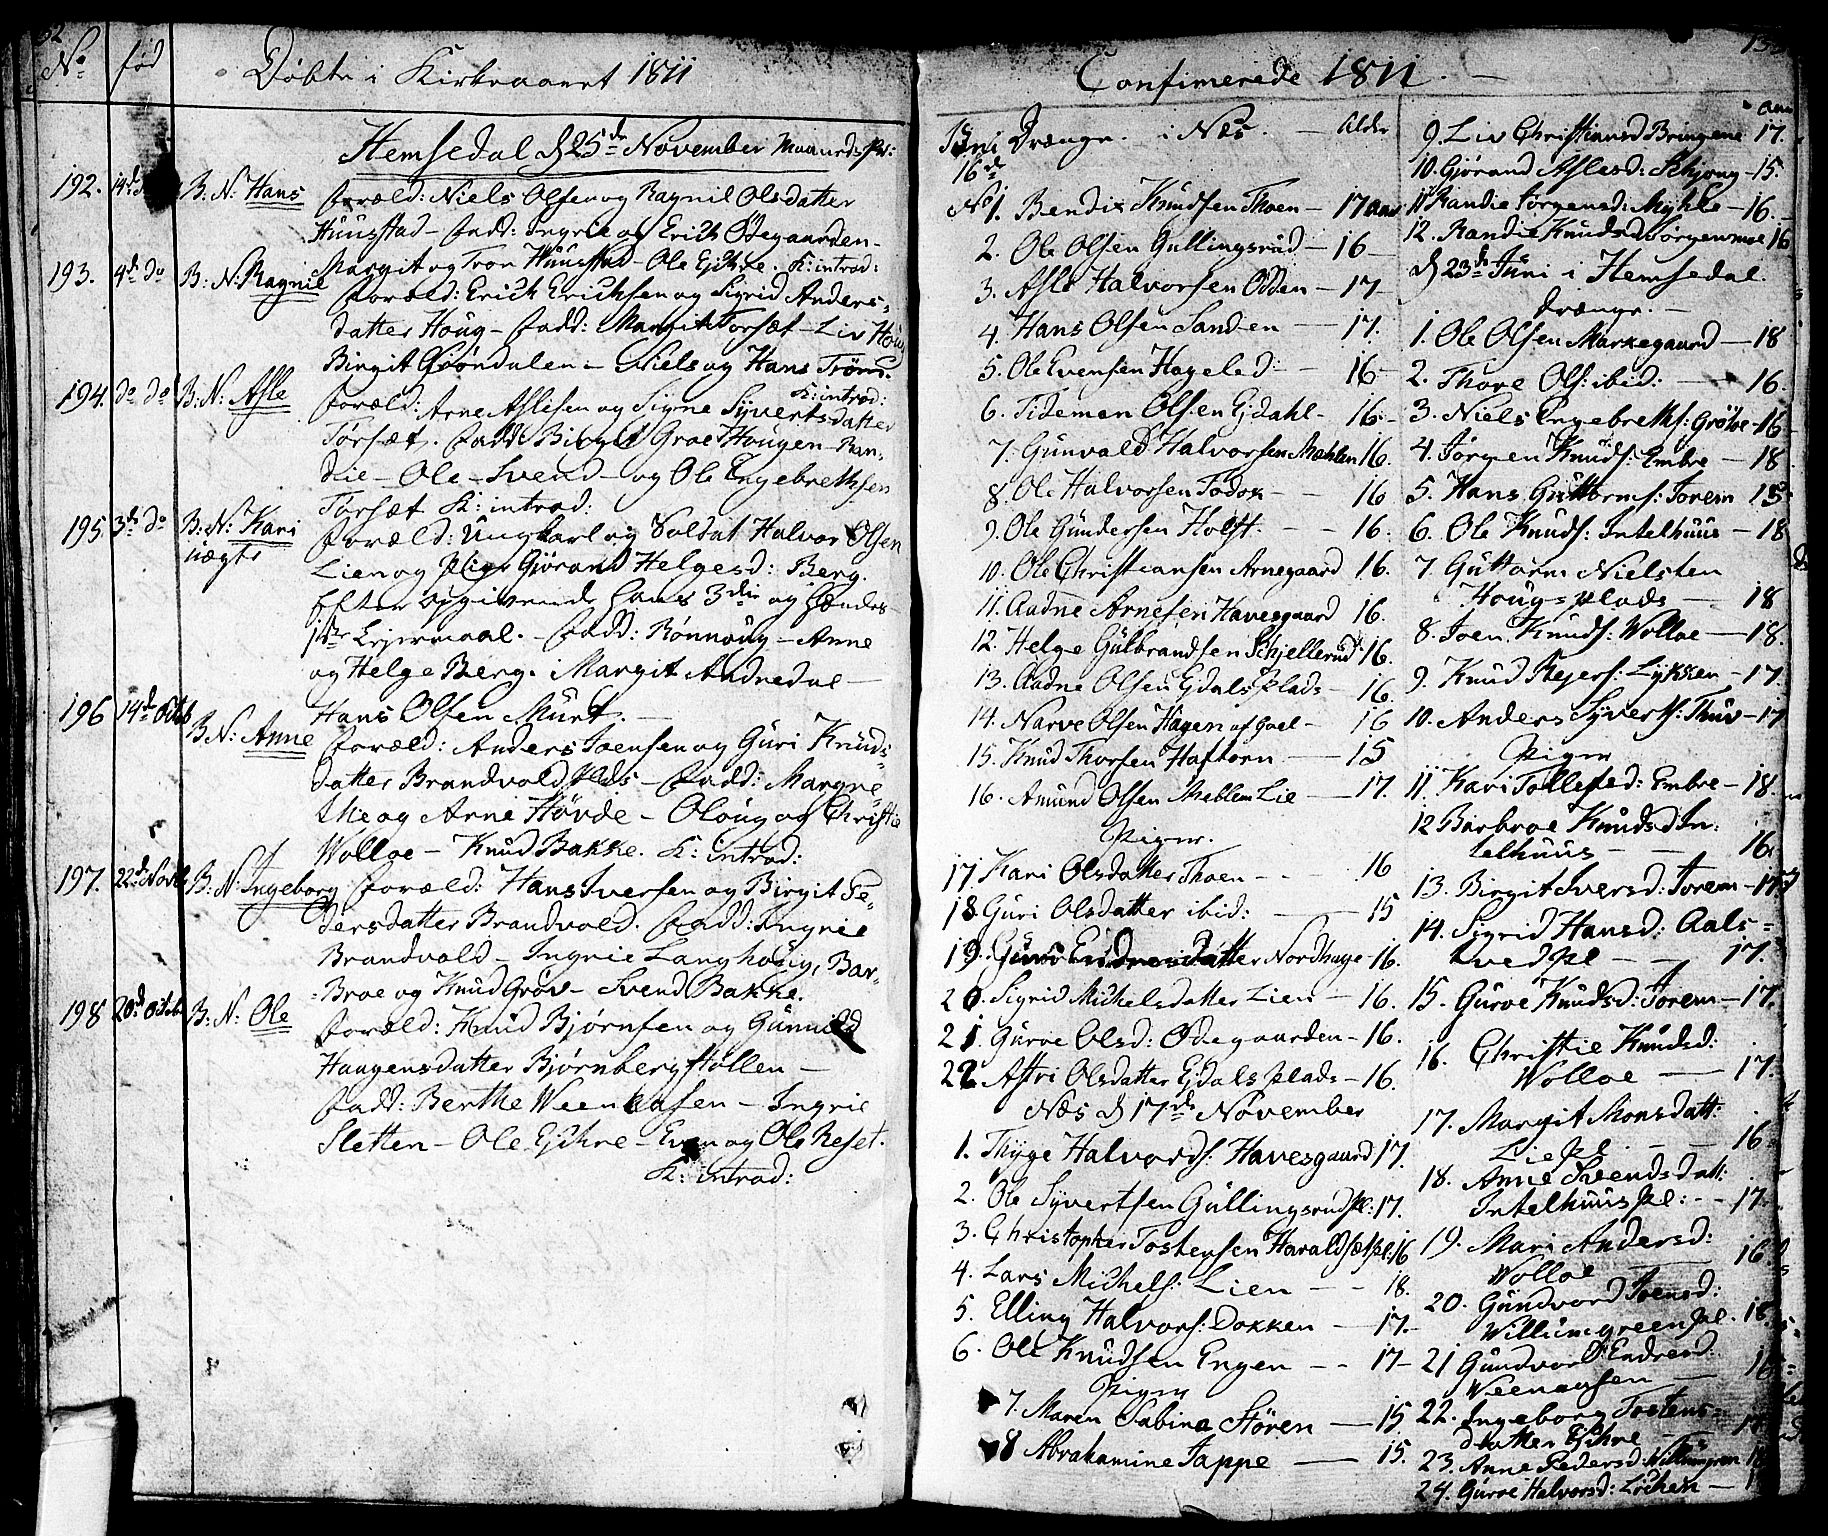 No fød Døbte i Kirkeaaret 1811
Hemsedal d 25de November Maanedsfr:
192. 14de B: N: Hans foræld: Niels Olsen og Ragnil Olsdatter
Huusstad – fadd: Ingrie og Erich Ødegaarden –
Margit og Tron Huusstad – Ole Ejchre. K: introd:
193. 4de do B: N: Ragnil foræld: Erich Erichsen og Sigrid Anders-
datter Houg – fadd: Margit Torset – Liv Houg
Birgit Grøndalen – Niels og Hans Trønd.
K: introd:
194. do do B: N: Asle foræld: Arne Aslesen og Signe Syvertsdatter
Torsæt. fadd: Birgit Groe Hougen – Ran-
die – Ole – Svend – og Ole Engebrethsen
Torsæt K: introd:
195. 3de do B: N: Kari foræld: Ungkarl og Soldat Halvor Olsen
uægte Lien og Pige Gjørand Helgesd: Berg.
Efter opgivende hans 3die og hendes
1ste Lejermaal. – fadd: Rønnoug – Anne
og Helge Berg. i Margit Andredal –
Hans Olsen Murt. –
196 14de Octob B N: Anne foræld: Anders Joensen og Guri Knuds-
datter Brandvold Plds – fadd: Margre-
the og Arne Hövde – Oloug og Christie
Wolloe – Knud Bakke. K: introd:
197. 22de Novb B: N: Ingeborg foræld: Hans Iversen og Birgit Pe-
dersdatter Brandvold. fadd: Ingrie
Brandvold – Ingrie Langhoug, Bar-
Broe og Knud Gröv – Svend Bakke.
198 20de Octob B: N: Ole foræld: Knud Bjørnsen og Gunnild
Haagensdatter Bjørnbergstöllen –
fadd: Berthe Weenaasen – Ingrie
Sletten – Ole Ejchre – Even og Ole Reset.
K: introd:
Confirmerede 1811. –
Juni Drænge i Næs. – Alder
16de
No 1. Bendix Knudsen Thoen – 17 aar
2. Ole Olsen Gullingsrud – 16
3. Asle Halvorsen Odden – 17
4. Hans Olsen Sanden – 17.
5. Ole Evensen Hageled: – 16
6. Tideman Olsen Ejdahl – 16
7. Gunvald Halvorsen Mæhlen 16.
8. Ole Halvorsen Todok – 16
9. Ole Gundersen Holst – – 16.
10. Ole Christiansen Arnegaard 16.
11. Aadne Arnesen Havesgaard 16.
12. Helge Gulbrandsen Skjellerud 16.
13. Aadne Olsen Ejdals Plads – 16
14. Narve Olsen Hagen af Goel – 16
15. Knud Thorsen Haftorn – 15
16. Amund Olsen Mehlem Lie – 17.
Piger.
17. Kari Olsdatter Thoen – – 16
18 Guri Olsdatter ibid: – 15
19. Guri Endresdatter Nordhage 16.
20. Sigrid Michelsdatter Lien – 16.
21. Gurve Olsd: Ødegaarden – 16.
22 Astri Olsdatter Ejdals Plads – 16.
Næs d 17de November
1. Thyge Halvords: Havesgaard 17.
2. Ole Syvertsen Gullingsrud Pl: 17.
3. Christopher Tostensen Haraldset pl: 16
4. Lars Michels: Lien – – 18.
5. Elling Halvors: Dokken – 17.
6. Ole Knudsen Engen – – 17
Piger
7. Maren Sabina Stören – 15
8 Abrahamine Jappe – 15.
9. Liv Christiansd Bringene 17.
10. Gjørand Aslesd: Skjong – 15.
11 Randie Jørgensd: Myhle – 16.
12. Randie Knudsd Jørgenmoe 16
d 23de Juni i Hemsedal
drænge. –
1. Ole Olsen Markegaard – 18
2. Thore Ols: ibid: – 16.
3. Niels Engebreths: Gröte – 16
4. Jørgen Knuds: Embre – 18
5. Hans Guttorms: Jorem 15
6. Ole Knuds: Intelhuus – 18
7. Guttorm Nielsten
Houg-plads – 18
8. Joen Knuds: Wolloe – 18.
9. Knud Rejers: Lykken – 17
10. Anders Syverts: Thuv – 17
Piger
11 Kari Tollefsd: Embre – 18
12 Barbroe Knudsd In:
telhuus – 16.
13. Birgit Iversd: Jorem – 17
14. Sigrid Hansd: Aals-
tved pl – – 17.
15. Gurve Knudsd: Jorem – 17.
16. Christie Knudsd:
Wolloe – 17.
17. Margit Monsdatt:
Lie pl – – 16
18. Anne Svendsdatt:
Intelhuus pl: – – 17
19. Mari Andersd:
Wolloe – 16
20. Gundvord Joensd:
Willumgreen pl. 18
21 Gundvor Endresd:
Weenaasen – 16
22. Ingeborg Tostens-
datter Ejchre – 17
23. Anne Pedersd: Willumgren 18
24. Gurve Halvorsd: Löchen –